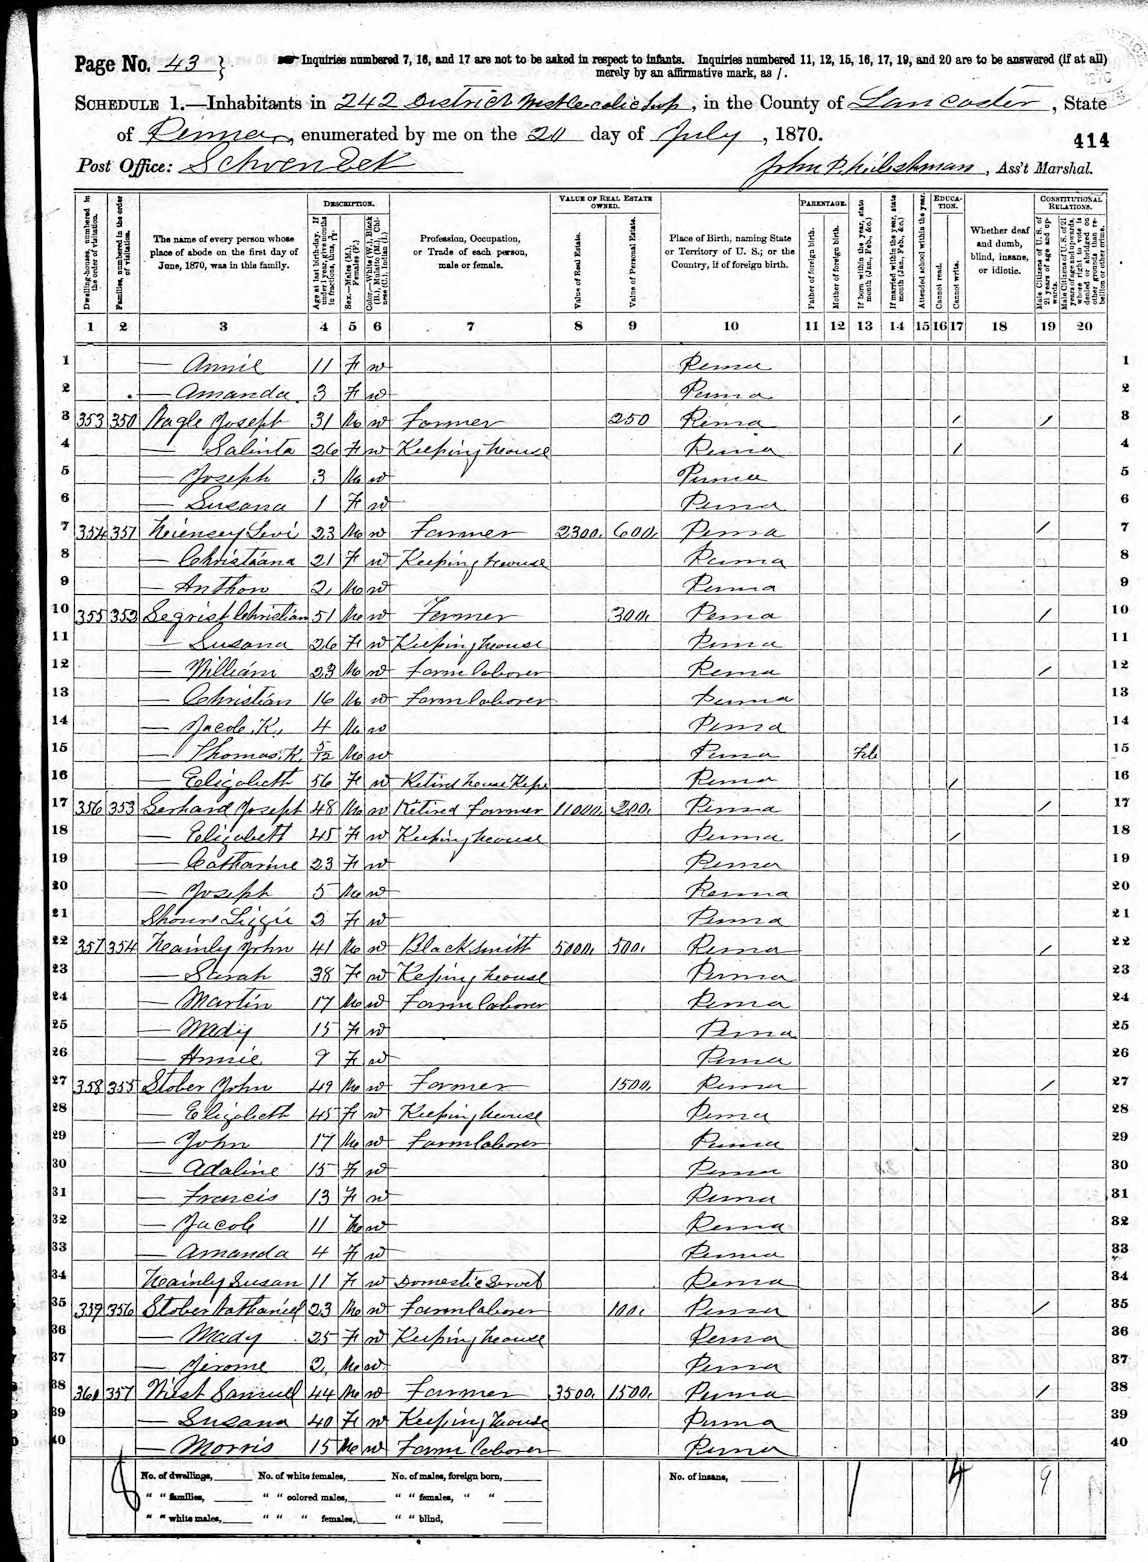 Page No. 43 } Inquiries numbered 7, 16, and 17 are not to be asked in respect to infants. Inquiries numbered 11, 12, 15, 16, 17, 19, and 20 are to be answered (if at all)
merely by an affirmative mark, as /.
SCHEDULE 1.—Inhabitants in 242 District, in the County of Lancaster, State
of Penna, enumerated by me on the 20 day of July, 1870.
414
Post Office: Schoeneck
John, Ass't Marshal.
DESCRIPTION. VALUE OF REAL ESTATE OWNED. PARENTAGE. EDUCATION. CONSTITUTIONAL RELATIONS.
Dwelling-houses, numbered in the order of visitation.
Families, numbered in the order of visitation.
The name of every person whose place of abode on the first day of June, 1870, was in this family.
Age at last birth-day. If under 1 year, give months in fractions, thus 3/12
Sex.—Males (M.), Females (F.)
Color.—White (W.), Black (B.), Mulatto (M.), Chinese (C.), Indian (I.)
Profession, Occupation, or Trade of each person, male or female.
Value of Real Estate.
Value of Personal Estate.
Place of Birth, naming State or Territory of U. S.; or the Country, if of foreign birth.
Father of foreign birth.
Mother of foreign birth.
If born within the year, state month (Jan., Feb., &c.)
If married within the year, state month (Jan., Feb., &c.)
Attended school within the year.
Cannot read.
Cannot write.
Whether deaf and dumb, blind, insane, or idiotic.
Male Citizens of U. S. of 21 years of age and upwards.
Male Citizens of U. S. of 21 years of age and upwards, whose right to vote is denied or abridged on other grounds than rebellion or other crime.
1 2 3 4 5 6 7 8 9 10 11 12 13 14 15 16 17 18 19 20
1 — Annie 11 F W Penna 1
2 — Amanda 3 F W Penna 2
3 353 350 Nagle Joseph 31 M W Farmer 250 Penna / / 3
4 — Salinta 26 F W Keeping house Penna / 4
5 — Joseph 3 M W Penna 5
6 — Susana 1 F W Penna 6
7 354 351 Levi 23 M W Farmer 2300 600 Penna / 7
8 — Christiana 21 F W Keeping house Penna 8
9 — Anthon 2 M W Penna 9
10 355 352 Segrist Christian 51 M W Farmer 300 Penna / 10
11 — Susana 26 F W Keeping house Penna 11
12 — William 23 M W Farm laborer Penna / 12
13 — Christian 16 M W Farm laborer Penna 13
14 — Jacob K. 4 M W Penna 14
15 — Thomas K. 5/12 M W Penna Feb 15
16 — Elizabeth 56 F W Retired house Penna / 16
17 356 353 Gerhard Joseph 48 M W Retired Farmer 11000 200 Penna / 17
18 — Elizabeth 45 F W Keeping house Penna / 18
19 — Catharine 23 F W Penna 19
20 — Joseph 5 M W Penna 20
21 Lizzie 2 F W Penna 21
22 357 354 Hainly John 41 M W Blacksmith 5000 500 Penna / 22
23 — Sarah 38 F W Keping house Penna 23
24 — Martin 17 M W Farm laborer Penna 24
25 — Mady 15 F W Penna 25
26 — Annie 9 F W Penna 26
27 358 355 Stober John 49 M W Farmer 1500 Penna / 27
28 — Elizabeth 45 F W Keeping house Penna 28
29 — John 17 M W Farm laborer Penna 29
30 — Adaline 15 F W Penna 30
31 — Francis 13 F W Penna 31
32 — Jacob 11 M W Penna 32
33 — Amanda 4 F W Penna 33
34 Hainly Susan 11 F W Domestic Servt Penna 34
35 359 356 Stober Nathaniel 23 M W Farm laborer 100 Penna / 35
36 — Mady 25 F W Keeping house Penna 36
37 — Jerome 2 M W Penna 37
38 360 357 Wiest Samuel 44 M W Farmer 3500 1500 Penna / 38
39 — Susana 40 F W Keeping house Penna 39
40 — Morris 15 M W Farm laborer Penna 40
8 No. of dwellings, No. of white females, No. of males, foreign born, No. of insane, 1 4 9
" " families, " " colored males, " " females, " "
" " white males, " " " females, " " blind,